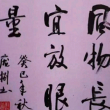 風物长
宜放眼
量
癸巳年秋